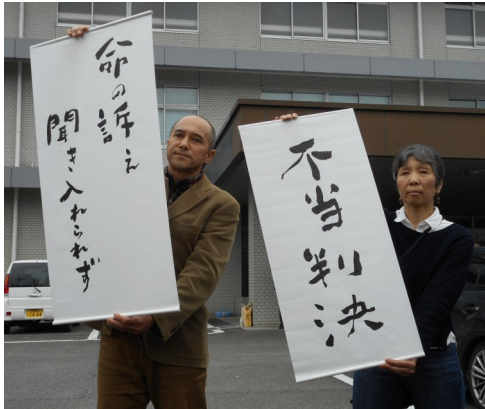 命の訴え
聞き入れられず
不当判決